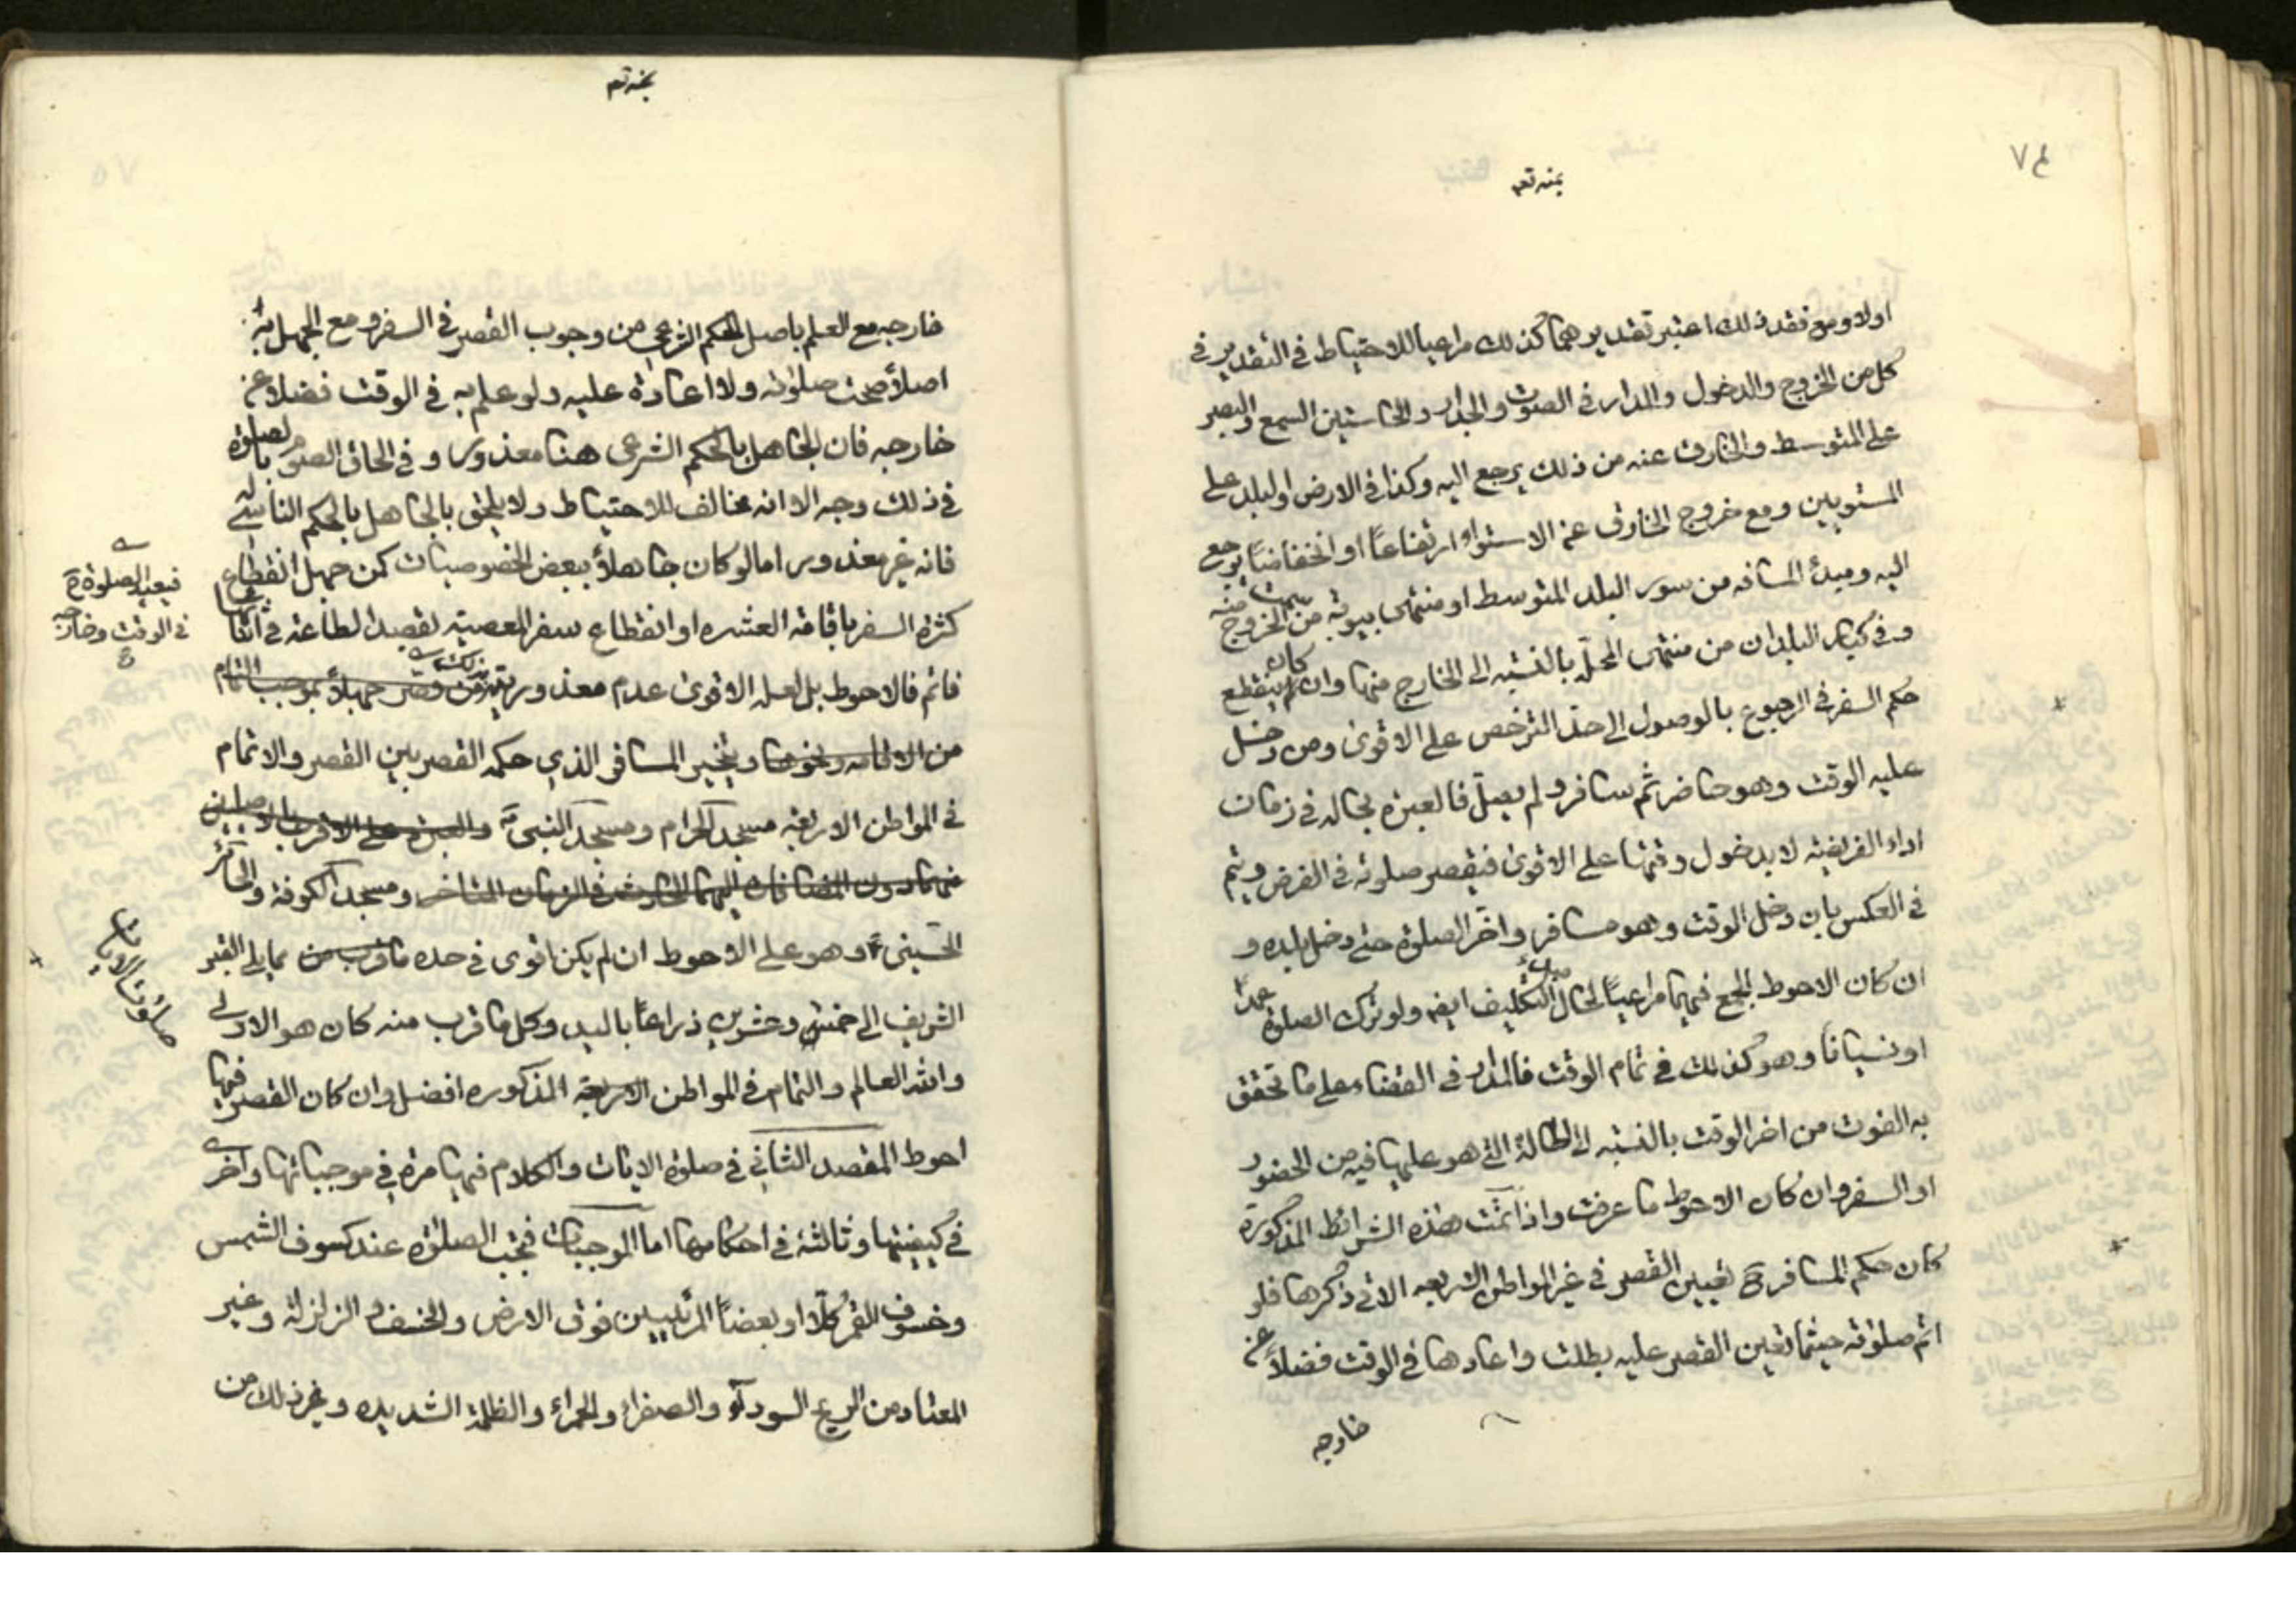 ٧٤
اولا ومع فقد ذلك اعتبر تقديرهما كذلك مراعيا للاحتياط في التقدير في
كل من الخروج والدخول والمدار في الصوت والجدار والحاستين السمع والبصر
على المتوسط والخارق عنه من ذلك يرجع اليه وكذا في الارض او البلد على
المستويين ومع خروج الخارق عن الاستواء ارتفاعًا او انخفاضًا يرجع
اليه ومبدأ المسافه من سور البلد المتوسط او منتهى بيوته من سمت الخروج منه
وفي كبار البلدان من منتهى المحلّة بالنسبه الى الخارج منها وان كان ينقطع
حكم السفر في الرجوع بالوصول الى حدّ الترخص على الاقوى ومن دخل
عليه الوقت وهو حاضر ثم سافر ولم يصلّ فالعبرة بحاله في زمان
اداء الفريضه لا بدخول وقتها على الاقوى فيقصر صلوته في الفرض ويتم
في العكس بان دخل الوقت وهو مسافر واخّر الصلوة حتى دخل بلده و
ان كان الاحوط الجمع فيهما مراعيًا لحال مبدء التكليف ايضا ولو ترك الصلوة عمدًا
او نسيانًا وهو كذلك في تمام الوقت فالمدار في القضاء على ما تحقق
به الفوت من اخر الوقت بالنسبه الى الحالة التي هو عليها فيه من الحضور
او السفر وان كان الاحوط ما عرفت واذا تمّت هذه الشرائط المذكورة
كان حكم المسافر ح تعيين القصر في غير المواطن الاربعه الاتي ذكرها فلو
اتم صلوته حيثما تعين القصر عليه بطلت واعادها في الوقت فضلاً عن
خارجه
خارجه مع العلم باصل الحكم الشرعي من وجوب القصر في السفر ومع الجهل به
اصلاً صحت صلوته ولا اعادة عليه ولو علم به في الوقت فضلا عن
خارجه فان الجاهل بالحكم الشرعي هنا معذور و في الحاق الصوم بالصلوة
في ذلك وجه الا انه مخالف للاحتياط ولا يلحق بالجاهل بالحكم الناسي له
فانه غير معذور اما لو كان جاهلاً ببعض الخصوصيات كمن جهل انقطاع
كثرة السفر باقامة العشره او انقطاع سفر المعصية لقصد الطاعة في اثنائها
فاتم فالاحوط بل لعله الاقوى عدم معذوريته بذلك
فيعيد الصلوة ح
في الوقت وخارجه
ويتخير المسافر الذي حكمه القصر بين القصر والاتمام
في المواطن الاربعه مسجد الحرام ومسجد النبي ص
ومسجد الكوفة والحائر
الحسيني ع وهو على الاحوط ان لم يكن اقوى في حده مما يلي القبر
الشريف الى خمس وعشرين ذراعًا باليد وكل ما قرب منه كان هو الاولى
والله العالم والتمام في المواطن الاربعة المذكوره افضل وان كان القصر فيها
احوط المقصد الثاني في صلوة الايات والكلام فيها مرة في موجباتها واخرى
صلوة الايات
في كيفيتها وثالثة في احكامها اما الموجبات فتجب الصلوة عند كسوف الشمس
وخسوف القمر كلّا او بعضاً المرئيين فوق الارض والخسف والزلزلة وغير
المعتاد من الريح السوداء والصفراء والحمراء والظلمة الشديده وغير ذلك من